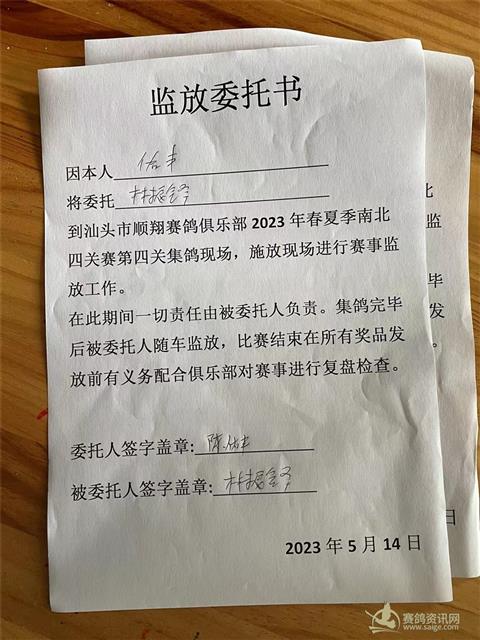 监放委托书
因本人
将委托 林振
到汕头市顺翔赛鸽俱乐部 2023 年春夏季南北
四关赛第四关集鸽现场，施放现场进行赛事监
放工作。
在此期间一切责任由被委托人负责。集鸽完毕
后被委托人随车监放，比赛结束在所有奖品发
放前有义务配合俱乐部对赛事进行复盘检查。
委托人签字盖章: 陈
被委托人签字盖章: 林振
2023 年 5 月 14 日
北
毕
发
日
赛鸽资讯网
www.saige.com